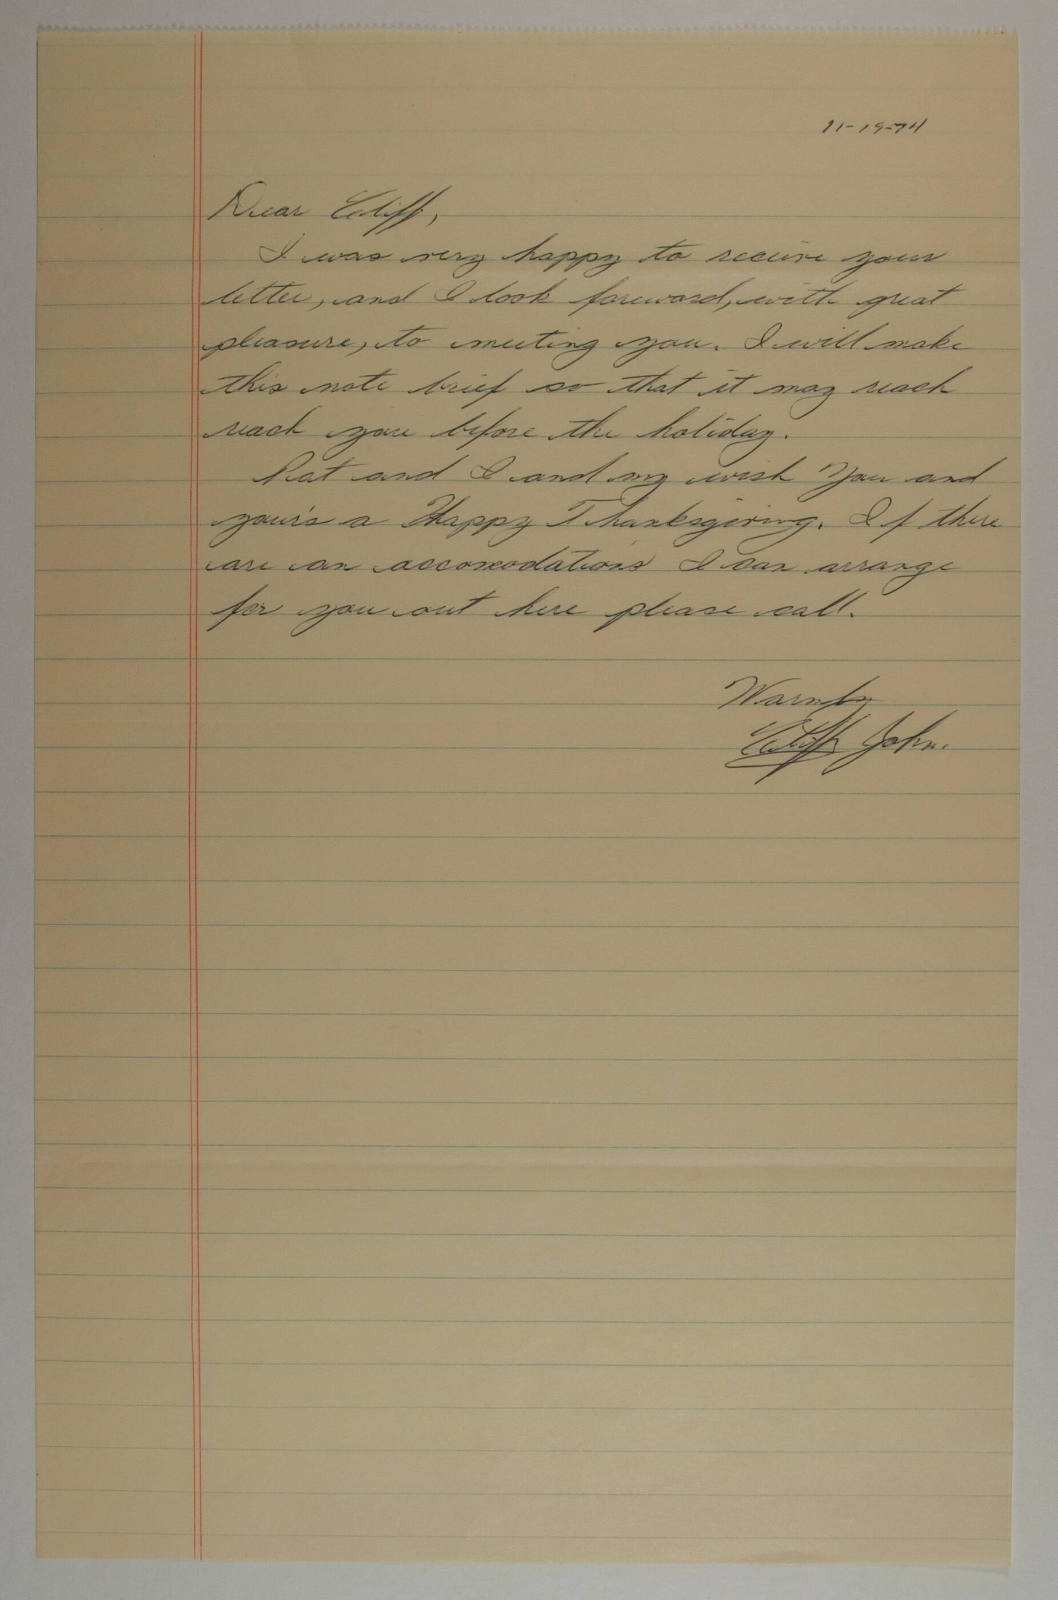 11-19-74
Dear Cliff,
I was very happy to recieve your
letter, and I look foreward, with great
pleasure, to meeting you. I will make
this note brief so that it may reach
reach you before the holiday.
Pat and I and my wish You and
your's a Happy Thanksgiving. If there
are an accomodations I can arrange
for you out here please call.
Warmly
Cliff John.